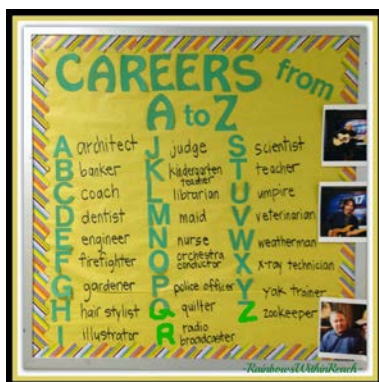 CAREERS from
A to Z
A architect
B banker
C coach
D dentist
E engineer
F firefighter
G gardener
H hair stylist
I illustrator
J judge
K kindergarten
teacher
L librarian
M maid
N nurse
O orchestra
conductor
P police officer
Q quilter
R radio
broadcaster
S scientist
T teacher
U umpire
V veterinarian
W weatherman
X x-ray technician
Y yak trainer
Z zookeeper
-RainbowsWithinReach-